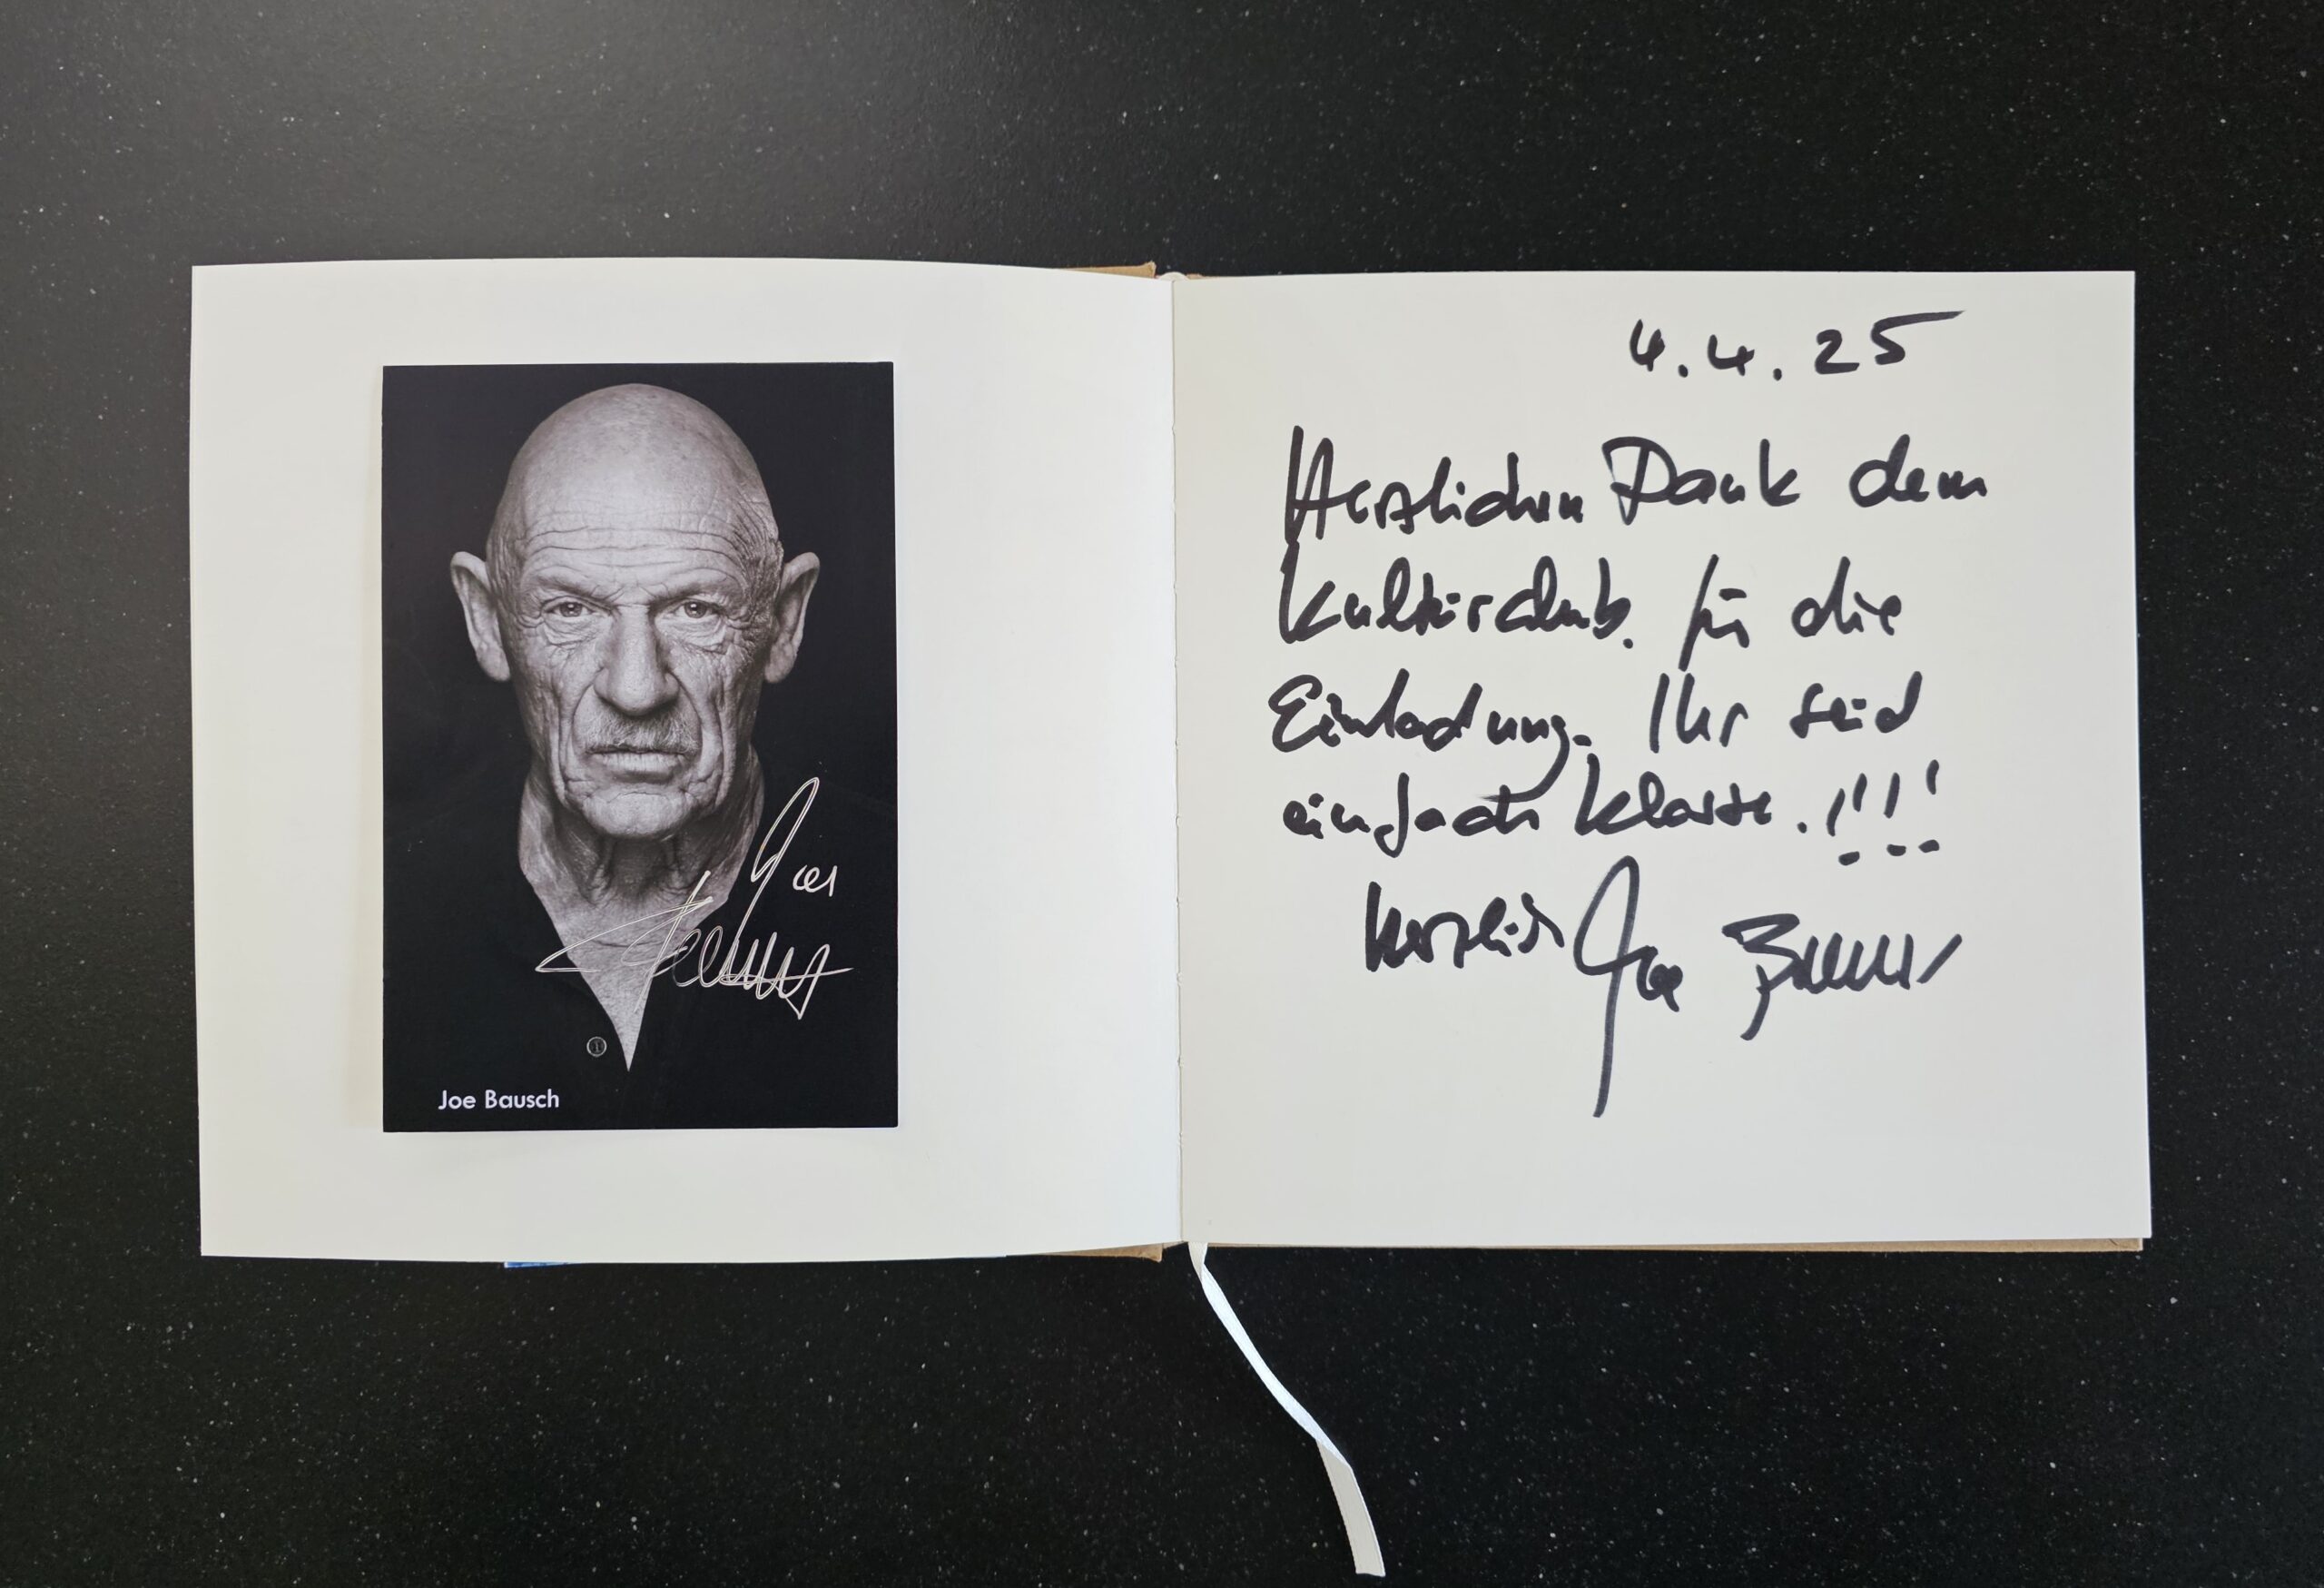 Joe Bausch
Joe Bausch
4.4.25
Herzlichen Dank dem
Kulturclub. für die
Einladung. Ihr seid
einfach klasse.!!!!
herzlich Joe Bausch